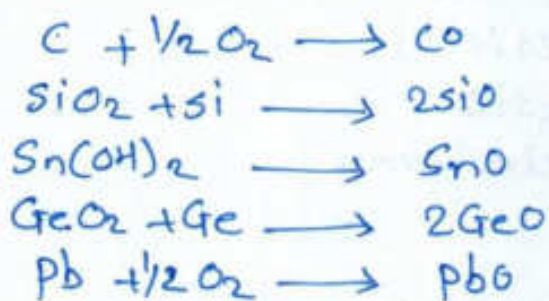 C + 1/2 O₂ ⟶ CO
SiO₂ + Si ⟶ 2SiO
Sn(OH)₂ ⟶ SnO
GeO₂ + Ge ⟶ 2GeO
Pb + 1/2 O₂ ⟶ PbO